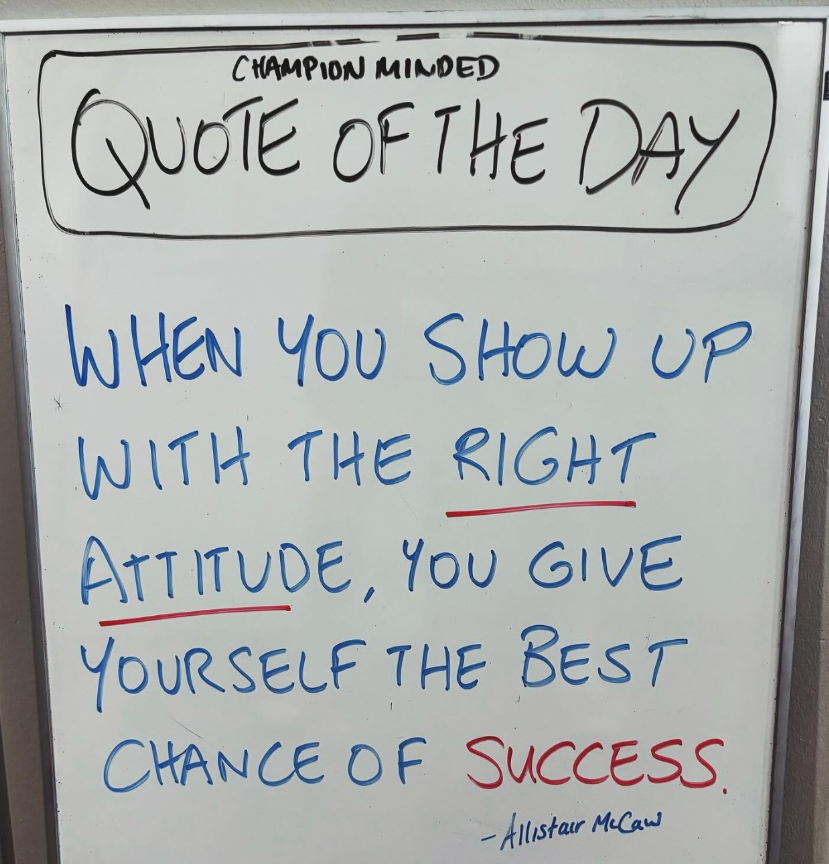 CHAMPION MINDED
QUOTE OF THE DAY
WHEN YOU SHOW UP
WITH THE RIGHT
ATTITUDE, YOU GIVE
YOURSELF THE BEST
CHANCE OF SUCCESS.
- Allistair McCaw